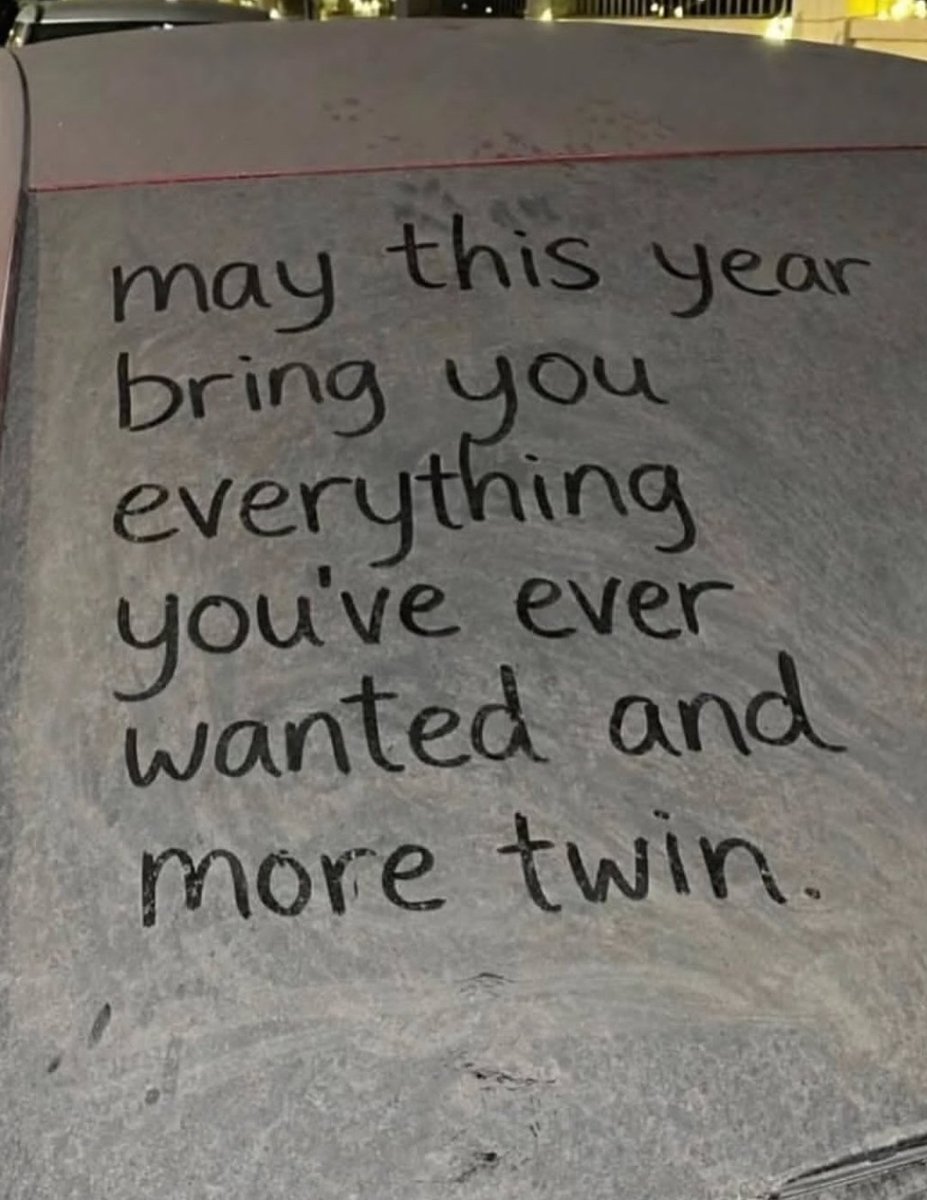 may this year
bring you
everything
you've ever
wanted and
more twin.